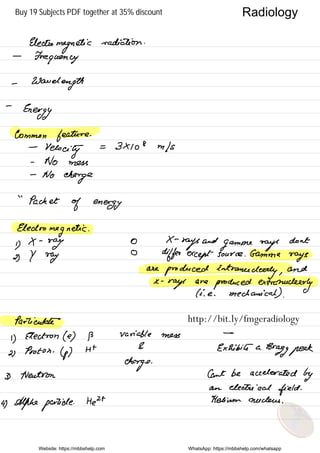 Buy 19 Subjects PDF together at 35% discount
Radiology
Electro magnetic radiation.
— Frequency
- Wavelength
- Energy
Common feature.
— Velocity = 3×10⁸ m/s
- No mass
- No charge
" Packet of energy
Electro magnetic.
1) X-ray 0 X-rays and gamma rays dont
2) γ ray 0 differ except source. Gamma rays
are produced intranuclearly, and
x-rays are produced extranuclearly
(i.e. mechanical).
Particulate
http://bit.ly/fmgeradiology
1) Electron (e) β variable mass —
2) Proton. (p) H+ & charge. Exhibits a Bragg peak
3) Neutron Cant be accelerated by
an electrical field.
4) Alpha particle He2+ Helium nucleus.
Website: https://mbbshelp.com
WhatsApp: https://mbbshelp.com/whatsapp